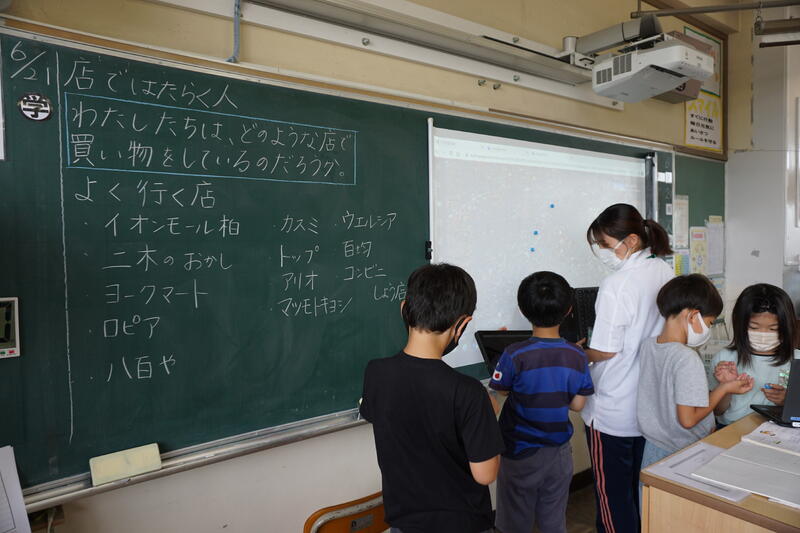 6/21
店ではたらく人
学
わたしたちは、どのような店で
買い物をしているのだろうか。
よく行く店
・イオンモール柏
・二木のおかし
・ヨークマート
・ロピア
・八百や
・カスミ
・トップ
アリオ
マツモトキヨシ
・ウエルシア
百均
コンビニ
しょう店